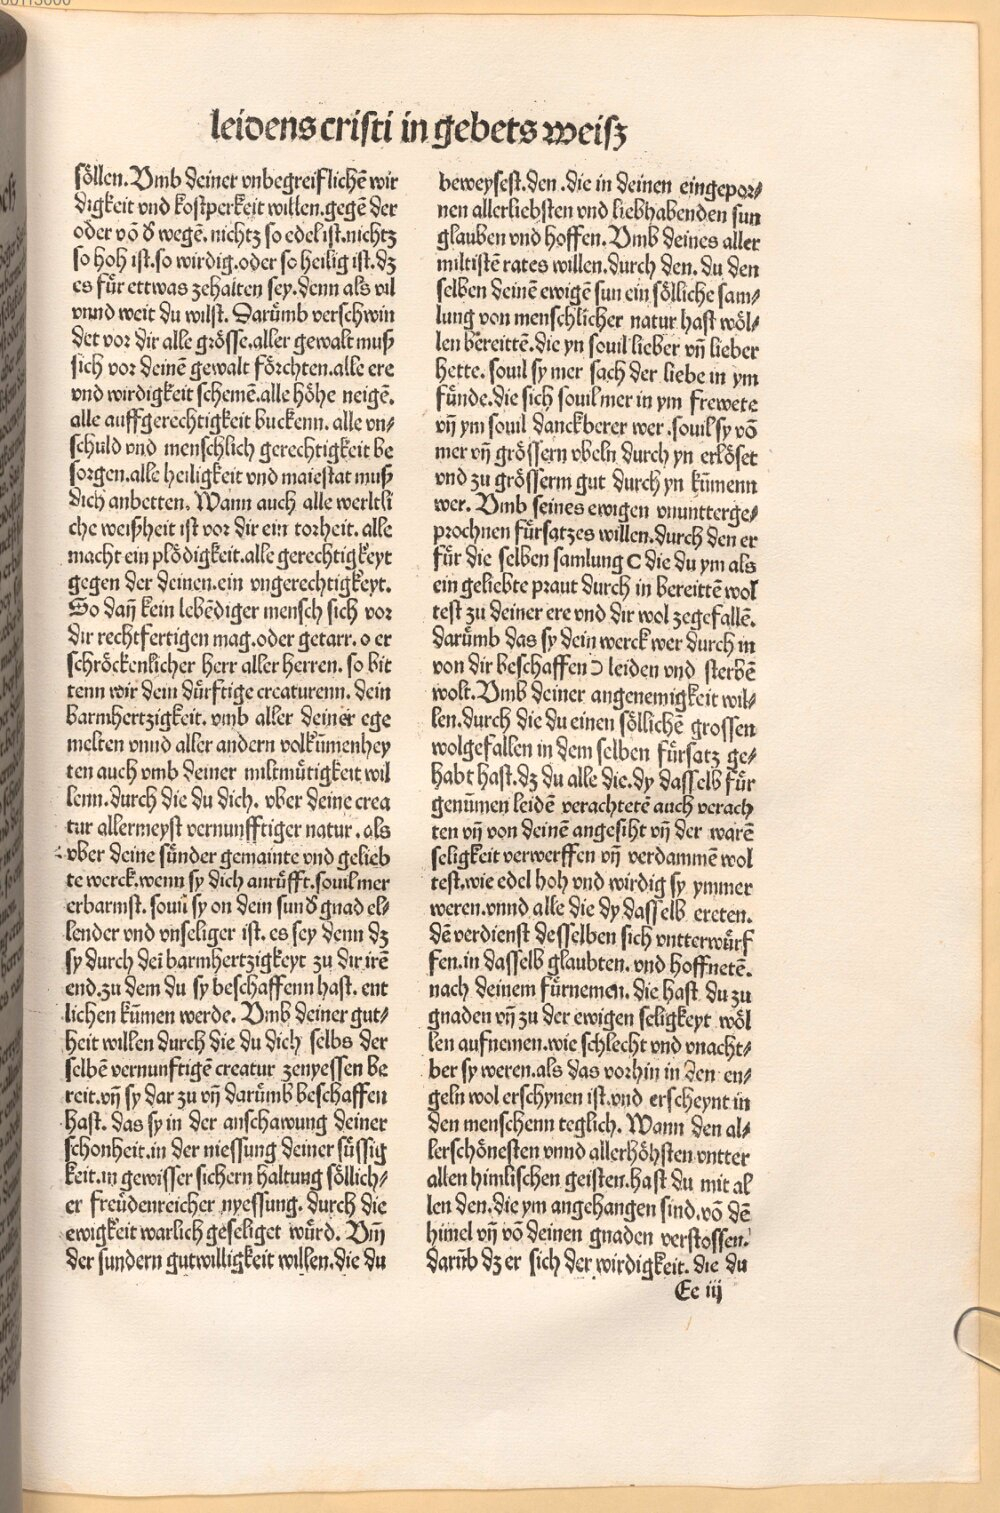 leidens cristi in gebets weisz
söllen. Vmb deiner vnbegreiflichē wir
digkeit vnd kostperkeit willen. gegē der
oder vō ð wegē. nichtz so edel ist. nichtz
so hoh ist. so wirdig. oder so heilig ist. dz
es für ettwas zehalten sey. denn als vil
vnnd weit du wilst. Darümb verschwin
det vor dir alle grösse. aller gewalt muß
sich vor deinē gewalt förchten. alle ere
vnd wirdigkeit schemē. alle höhe neigē.
alle auffgerechtigkeit buckenn. alle vn⸗
schuld vnd menschlich gerechtigkeit be
sorgen. alle heiligkeit vnd maiestat muß
dich anbetten. Wann auch alle werltli
che weißheit ist vor dir ein torheit. alle
macht ein plödigkeit. alle gerechtigkeyt
gegen der deinen. ein vngerechtigkeyt.
So dañ kein lebēdiger mensch sich vor
dir rechtfertigen mag. oder getarr. o er
schröckenlicher herr aller herren. so bit
tenn wir dein dürftige creaturenn. dein
barmhertzigkeit. vmb aller deiner ege
melten vnnd aller andern volkūmenhey
ten auch vmb deiner miltmütigkeit wil
lenn. durch die du dich. vber deine crea
tur allermeyst vernunfftiger natur. als
vber deine sünder gemainte vnd gelieb
te werck. wenn sy dich anrüfft. souil mer
erbarmst. souil sy on dein sun ð gnad el⸗
lender vnd vnseliger ist. es sey denn dz
sy durch dei barmhertzigkeyt zu dir irē
end. zu dem du sy beschaffenn hast. ent
lichen kūmen werde. Vmb deiner gut⸗
heit willen durch die du dich selbs der
selbē vernunftigē creatur zenyessen be
reit. vñ sy dar zu vñ darümb beschaffen
hast. das sy in der anschawung deiner
schonheit. in der niessung deiner süssig
keit. in gewisser sichern haltung söllich⸗
er freüdenreicher nyessung. durch die
ewigkeit warlich geseliget würd. Vm̄
der sundern gutwilligkeit willen. die du
beweysest. den. die in deinen eingepor⸗
nen allerliebsten vnd liebhabenden sun
glauben vnd hoffen. Vmb deines aller
miltistē rates willen. durch den. du den
selben deinē ewigē sun ein sölliche sam⸗
lung von menschlicher natur hast wöl⸗
len bereittē. die yn souil lieber vñ lieber
hette. souil sy mer sach der liebe in ym
fünde. die sich souil mer in ym frewete
vñ ym souil danckberer wer. souil sy vō
mer vñ grössern vbeln durch yn erlöset
vnd zu grösserm gut durch yn kūmenn
wer. Vmb seines ewigen vnuntterge⸗
prochnen fürsatzes willen. durch den er
für die selben samlung C die du ym als
ein geliebte praut durch in bereittē wol
test zu deiner ere vnd dir wol zegefallē.
darümb das sy dein werck wer durch in
von dir beschaffen Ɔ leiden vnd sterbē
wolt. Vmb deiner angenemigkeit wil⸗
len. durch die du einen söllichē grossen
wolgefallen in dem selben fürsatz ge⸗
habt hast. dz du alle die. dy dasselb für
genūmen leidē verachtetē auch verach
ten vñ von deinē angesiht vñ der warē
seligkeit verwerffen vñ verdammē wol
test. wie edel hoh vnd wirdig sy ymmer
weren. vnnd alle die dy dasselb ereten.
dē verdienst desselben sich vntterwürf
fen. in dasselb glaubten. vnd hoffnetē.
nach deinem fürnemen. die hast du zu
gnaden vñ zu der ewigen seligkeyt wöl
len aufnemen. wie schlecht vnd vnacht⸗
ber sy weren. als das vorhin in den en⸗
geln wol erschynen ist. vnd erscheynt in
den menschenn teglich. Wann den al⸗
lerschönesten vnnd allerhöhsten vntter
allen himlischen geisten. hast du mit al
len den. die ym angehangen sind. vō dē
himel vñ vō deinen gnaden verstossen.
darūb dz er sich der wirdigkeit. die du
Ee iij